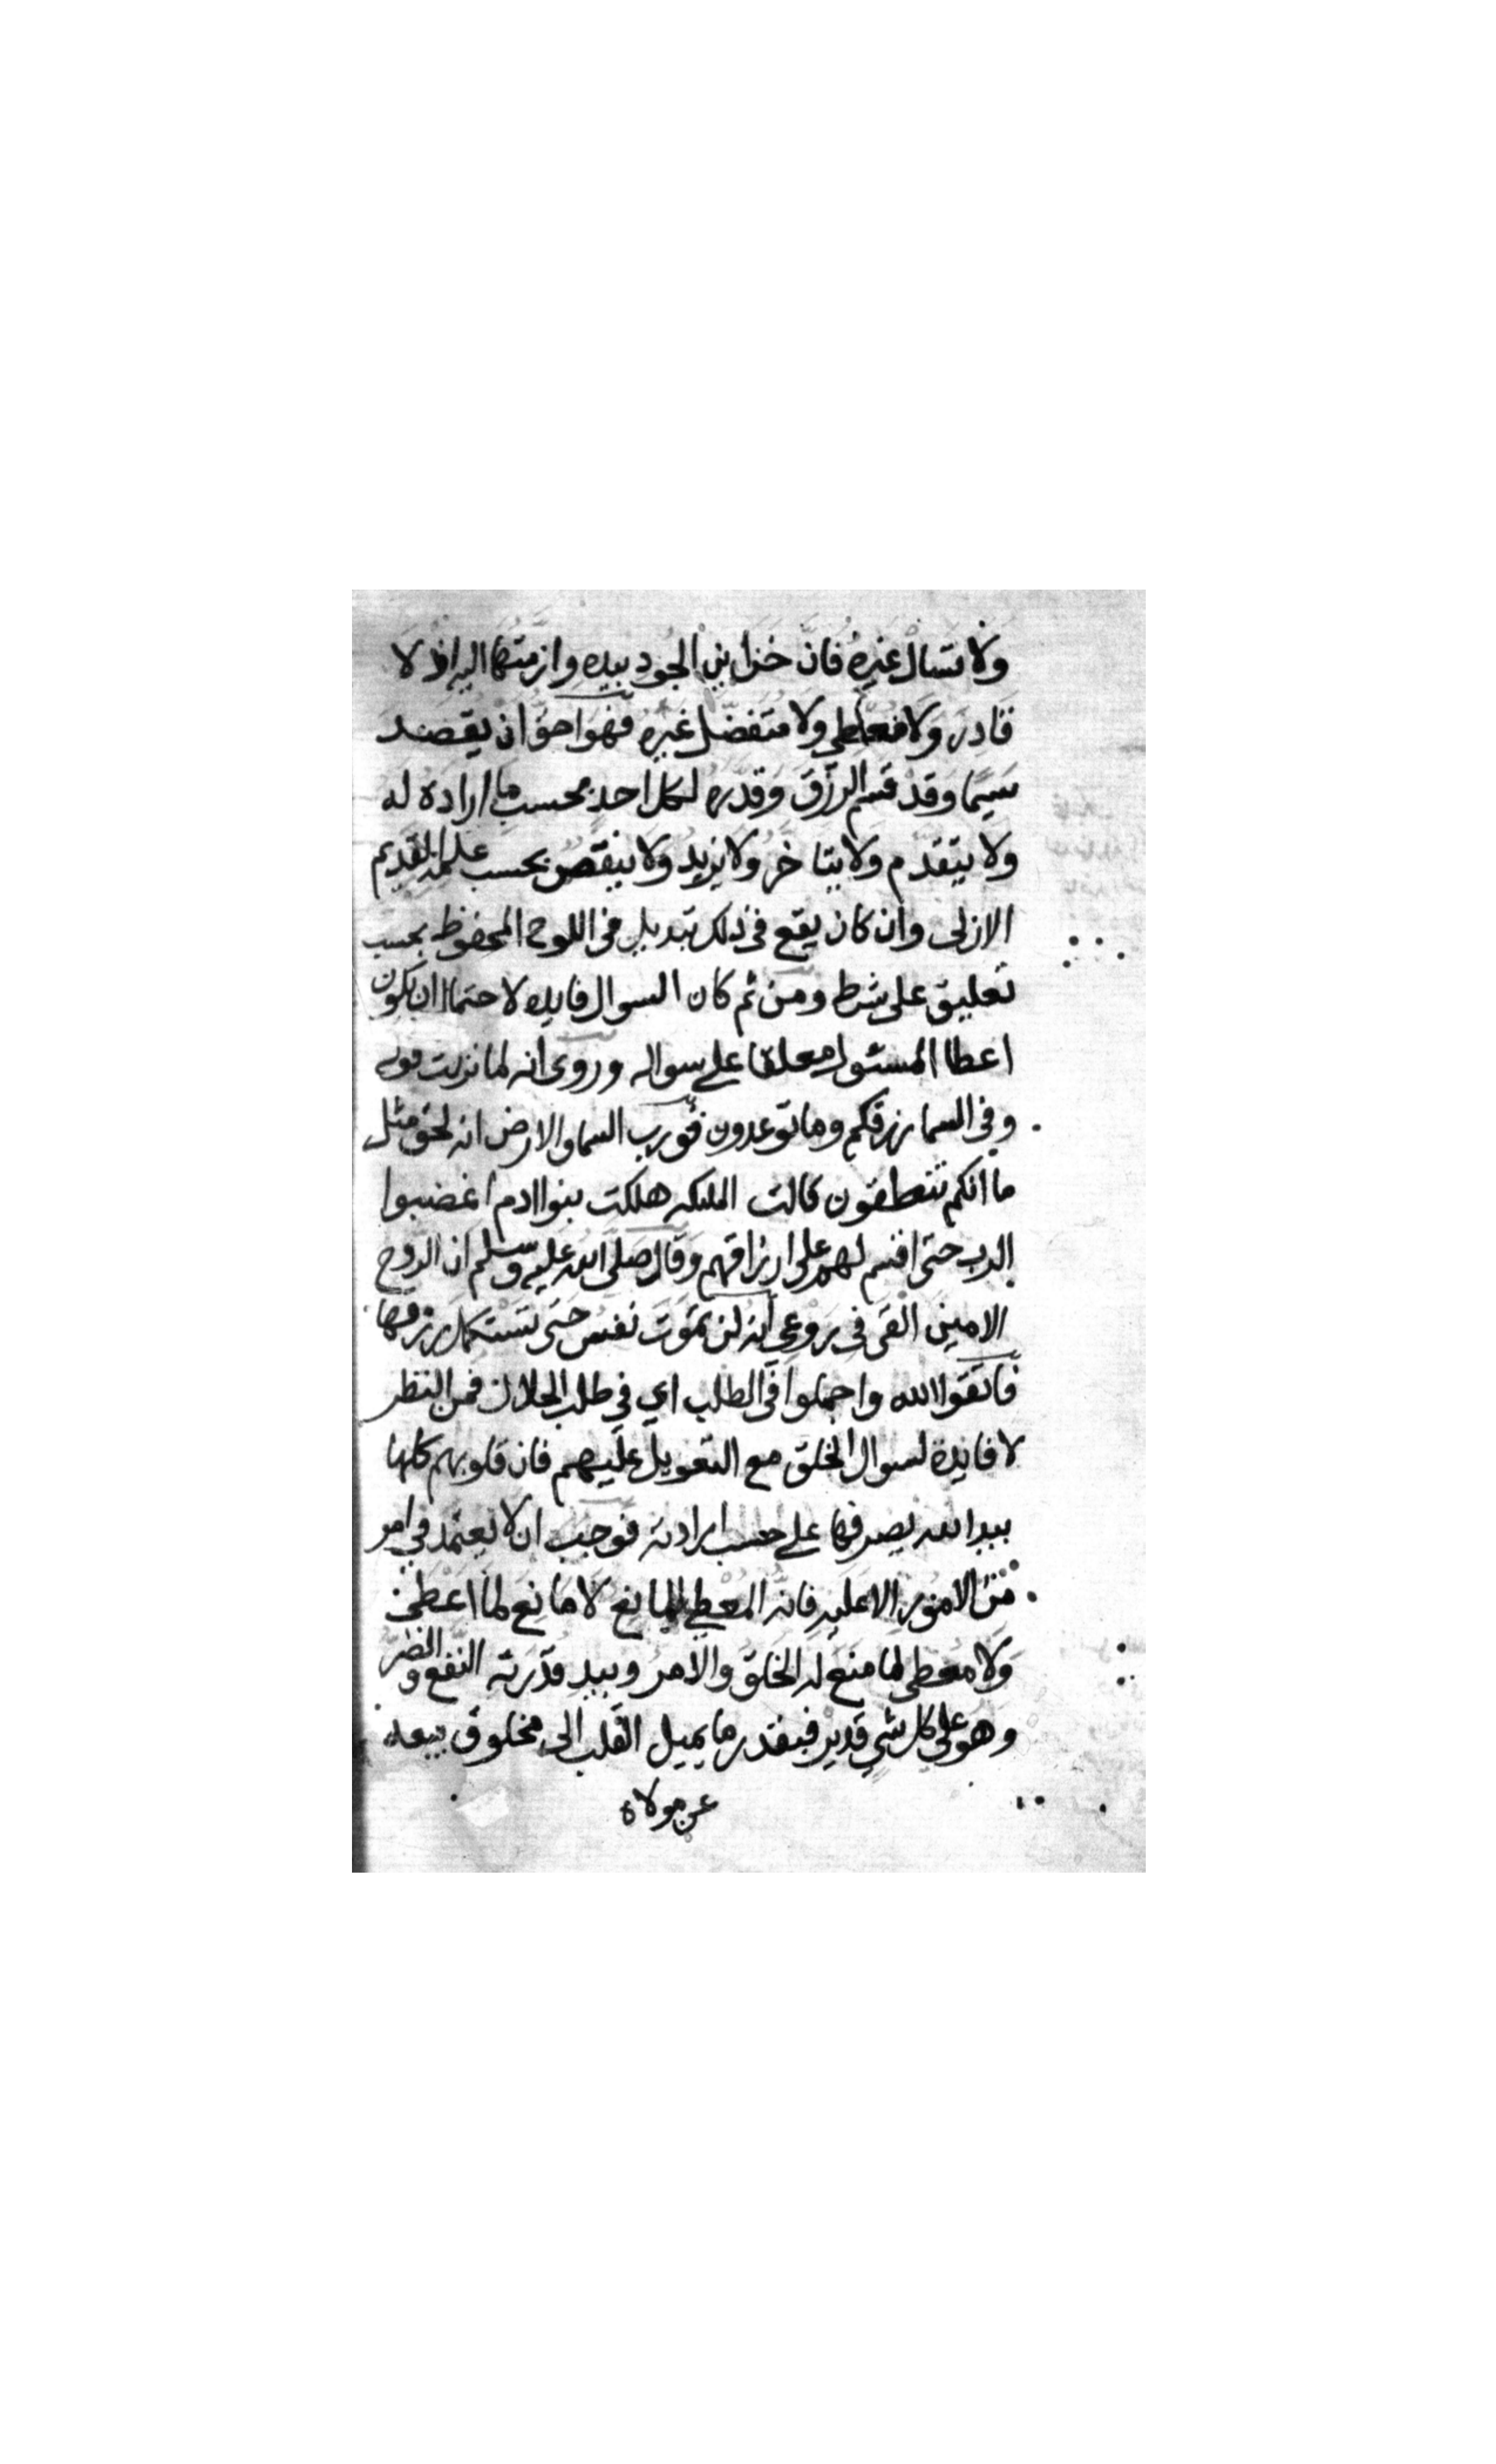 ولا تسال غيره فان خزاين الجود بيده وازمتها اليه اذ لا
قادر ولا معطي ولا متفضل غيره فهو احق ان يقصد
سيما وقد قسم الرزق وقدره لكل احد بحسب ما اراده له
ولا يتقدم ولا يتاخر ولا يزيد ولا ينقص بحسب علمه القديم
الازلى وان كان يقع في ذلك تبديل في اللوح المحفوظ بحسب
تعليق على شرط ومن ثم كان السوال فايده لاحتمال ان يكون
اعطا المسئول معلقا على سواله وروى انه لما نزلت قوله
وفى السما رزقكم وما توعدون فورب السما والارض انه لحق مثل
ما انكم تنطقون قالت المليكه هلكت بنوا ادم اغضبوا
الرب حتى اقسم لهم على ارزاقهم وقال صلى الله عليه وسلم ان الروح
الامين القى في روعي انه لن تموت نفس حتى تستكمل رزقها
فاتقوا الله واجملوا في الطلب اي في طلب الحلال فمن النظر
لا فايدة لسوال الخلق مع التعويل عليهم فان قلوبهم كلها
بيد الله يصرفها على حسب ارادته فوجب ان لا يعتمد في امر
من الامور الا عليه فانه المعطي المانع لا مانع لما اعطى
ولا معطي لما منع له الخلق والامر وبيد قدرته النفع والضر
وهو على كل شي قدير فبقدر ما يميل القلب الى مخلوق يبعد
عن مولاه